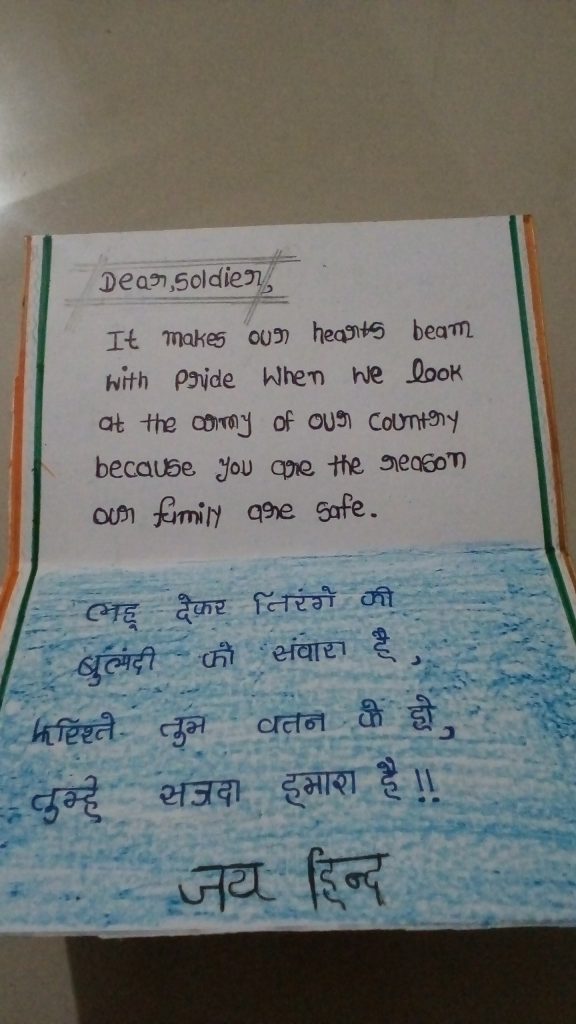 Dear, Soldier,
It makes our hearts beam
with Pride When We look
at the army of our Country
because you are the reason
our fimily are safe.
लहू देकर तिरंगे की
बुलंदी को संवारा है,
फरिश्ते तुम वतन के हो,
तुम्हे सजदा हमारा है !!
जय हिन्द